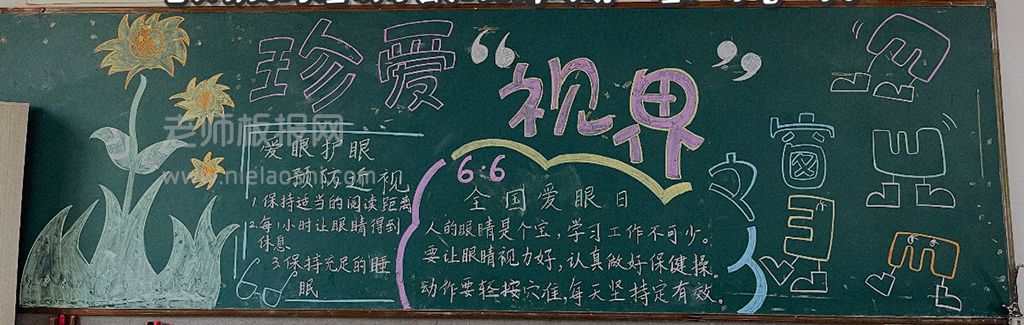 珍爱“视界”
老师板报网
www.nielaoshi.net
爱眼护眼
预防近视
1.保持适当的阅读距离
2.每1小时让眼睛得到
休息
3.保持充足的睡
眠
6·6
全国爱眼日
人的眼睛是个宝，学习工作不可少。
要让眼睛视力好，认真做好保健操。
动作要轻按穴准，每天坚持定有效。
之
窗